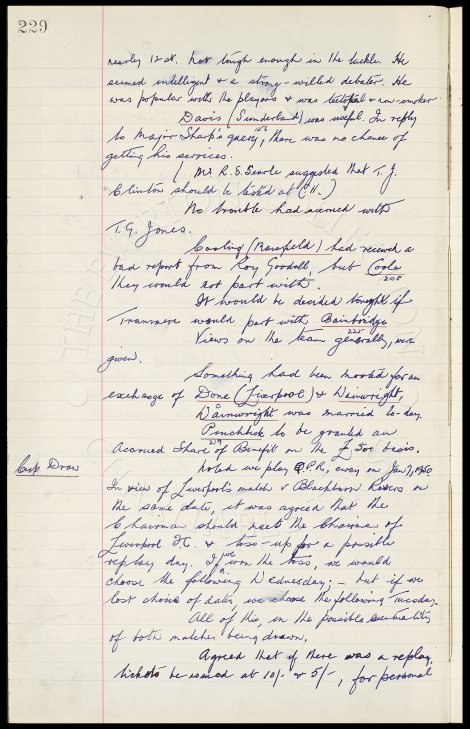 229
nearly 12 st. Not tough enough in the tackle. He
seemed intelligent & a strong-willed debater. He
was popular with the players & was teetotal & non-smoker.
Davis (Sunderland) was useful. In reply
to Major Sharp's query, there was no chance of
getting his services.
(Mr R.E. Searle suggested that T.J.
Clinton should be tested at C.H.)
No trouble had accrued with
T.G. Jones.
Cooling (Mansfield) had received a
bad report from Roy Goodall, but Coole
208
they would not part with.
It would be decided tonight if
Tranmere would part with Bainbridge
225
Views on the team generally, were
given.
Something had been mooted for an
exchange of Done (Liverpool) & Wainwright,
Wainwright was married to-day.
Pinchbeck to be granted an
219
Accrued Share of Benefit on the £500 basis.
Cup Draw
Noted we play Q.P.R, away on Jan 7, 1950
In view of Liverpool's match v Blackburn Rovers on
the same date, it was agreed that the
Chairman should meet the Chairman of
Liverpool F.C. & toss-up for a possible
replay day. If we won the toss, we would
choose the following Wednesday; - but if we
lost choice of date, we choose the following Tuesday.
All of this, in the possible
of both matches being drawn.
Agreed that if there was a replay,
tickets be issued at 10/- & 5/-, for personal